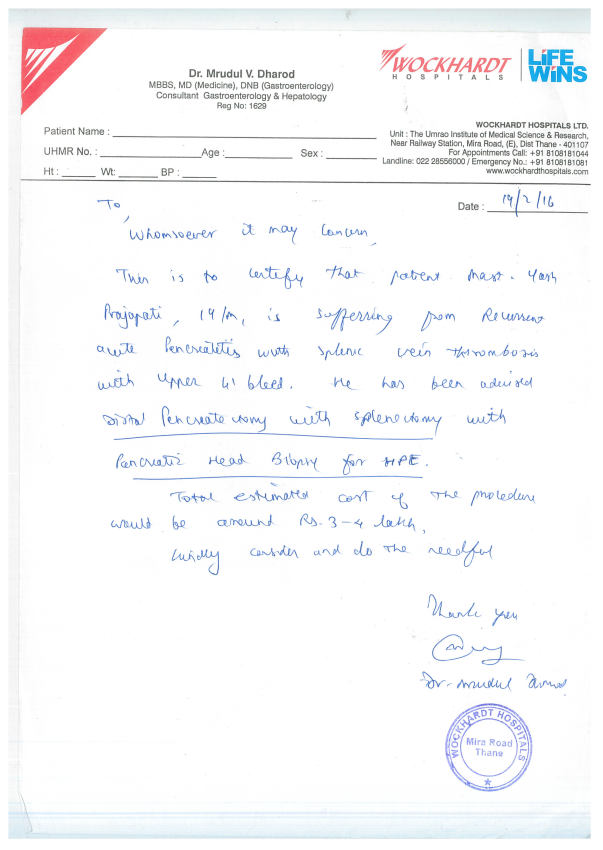 WOCKHARDT
HOSPITALS
LiFE
WiNS
Dr. Mrudul V. Dharod
MBBS, MD (Medicine), DNB (Gastroenterology)
Consultant Gastroenterology & Hepatology
Reg No: 1629
WOCKHARDT HOSPITALS LTD.
Unit : The Umrao Institute of Medical Science & Research,
Near Railway Station, Mira Road, (E), Dist Thane - 401107
For Appointments Call: +91 8108181044
Landline: 022 28556000 / Emergency No.: +91 8108181081
www.wockhardthospitals.com
Patient Name :
UHMR No. : Age : Sex :
Ht : Wt: BP :
Date : 19/2/16
To,
Whomsoever it may concern,
This is to certify that patient Mast. Yash
Prajapati, 19/m, is suffering from Recurrent
acute Pancreatitis with splenic vein thrombosis
with upper GI bleed. He has been advised
Distal Pancreatectomy with splenectomy with
Pancreatic Head Biopsy for HPE.
Total estimated cost of the procedure
would be around Rs. 3-4 lakh,
kindly consider and do the needful
Thank you
Dr. Mrudul Dharod
WOCKHARDT HOSPITALS
Mira Road
Thane